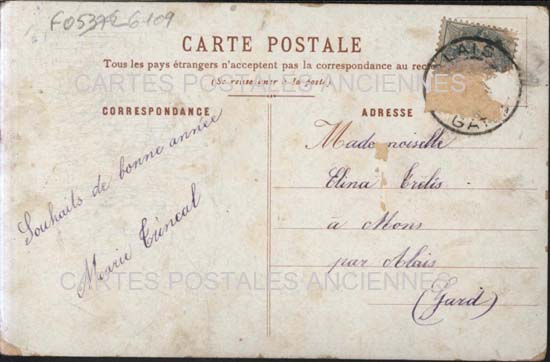 CARTE POSTALE
Tous les pays étrangers n'acceptent pas la correspondance au rec
(Se renseigner à la poste)
CARTES POSTALES ANCIENNES
CORRESPONDANCE
ADRESSE
Souhaits de bonne année
Marie
Mademoiselle
Elina
à Mons
par Alais
(Gard)
CARTES POSTALES ANCIENNES
ALAIS
GA